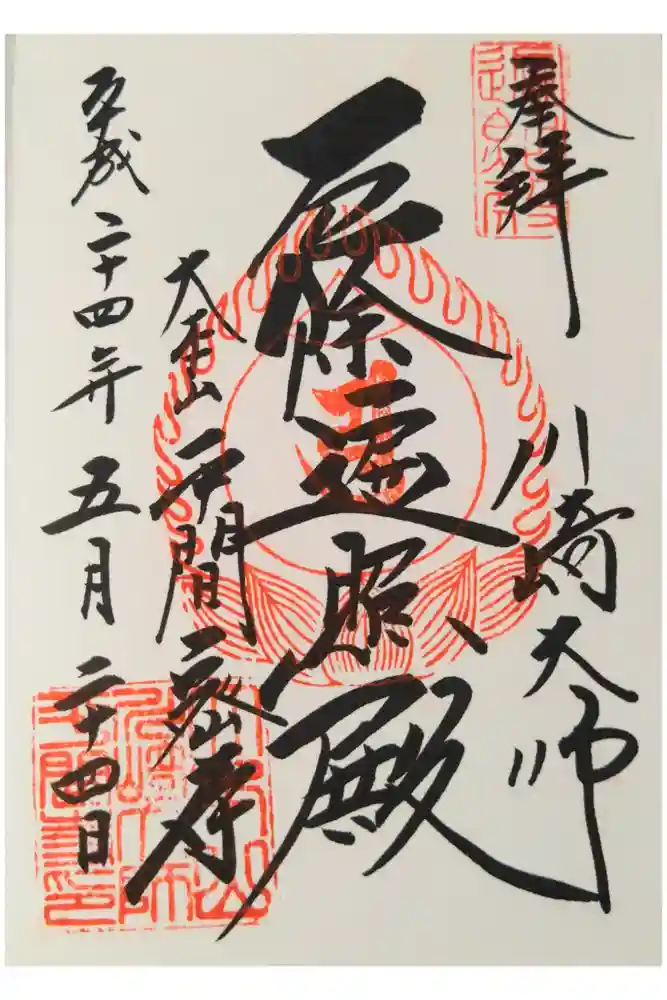 奉拝
川崎大師
厄除遍照殿
大本山平間密寺
平成二十四年五月二十四日